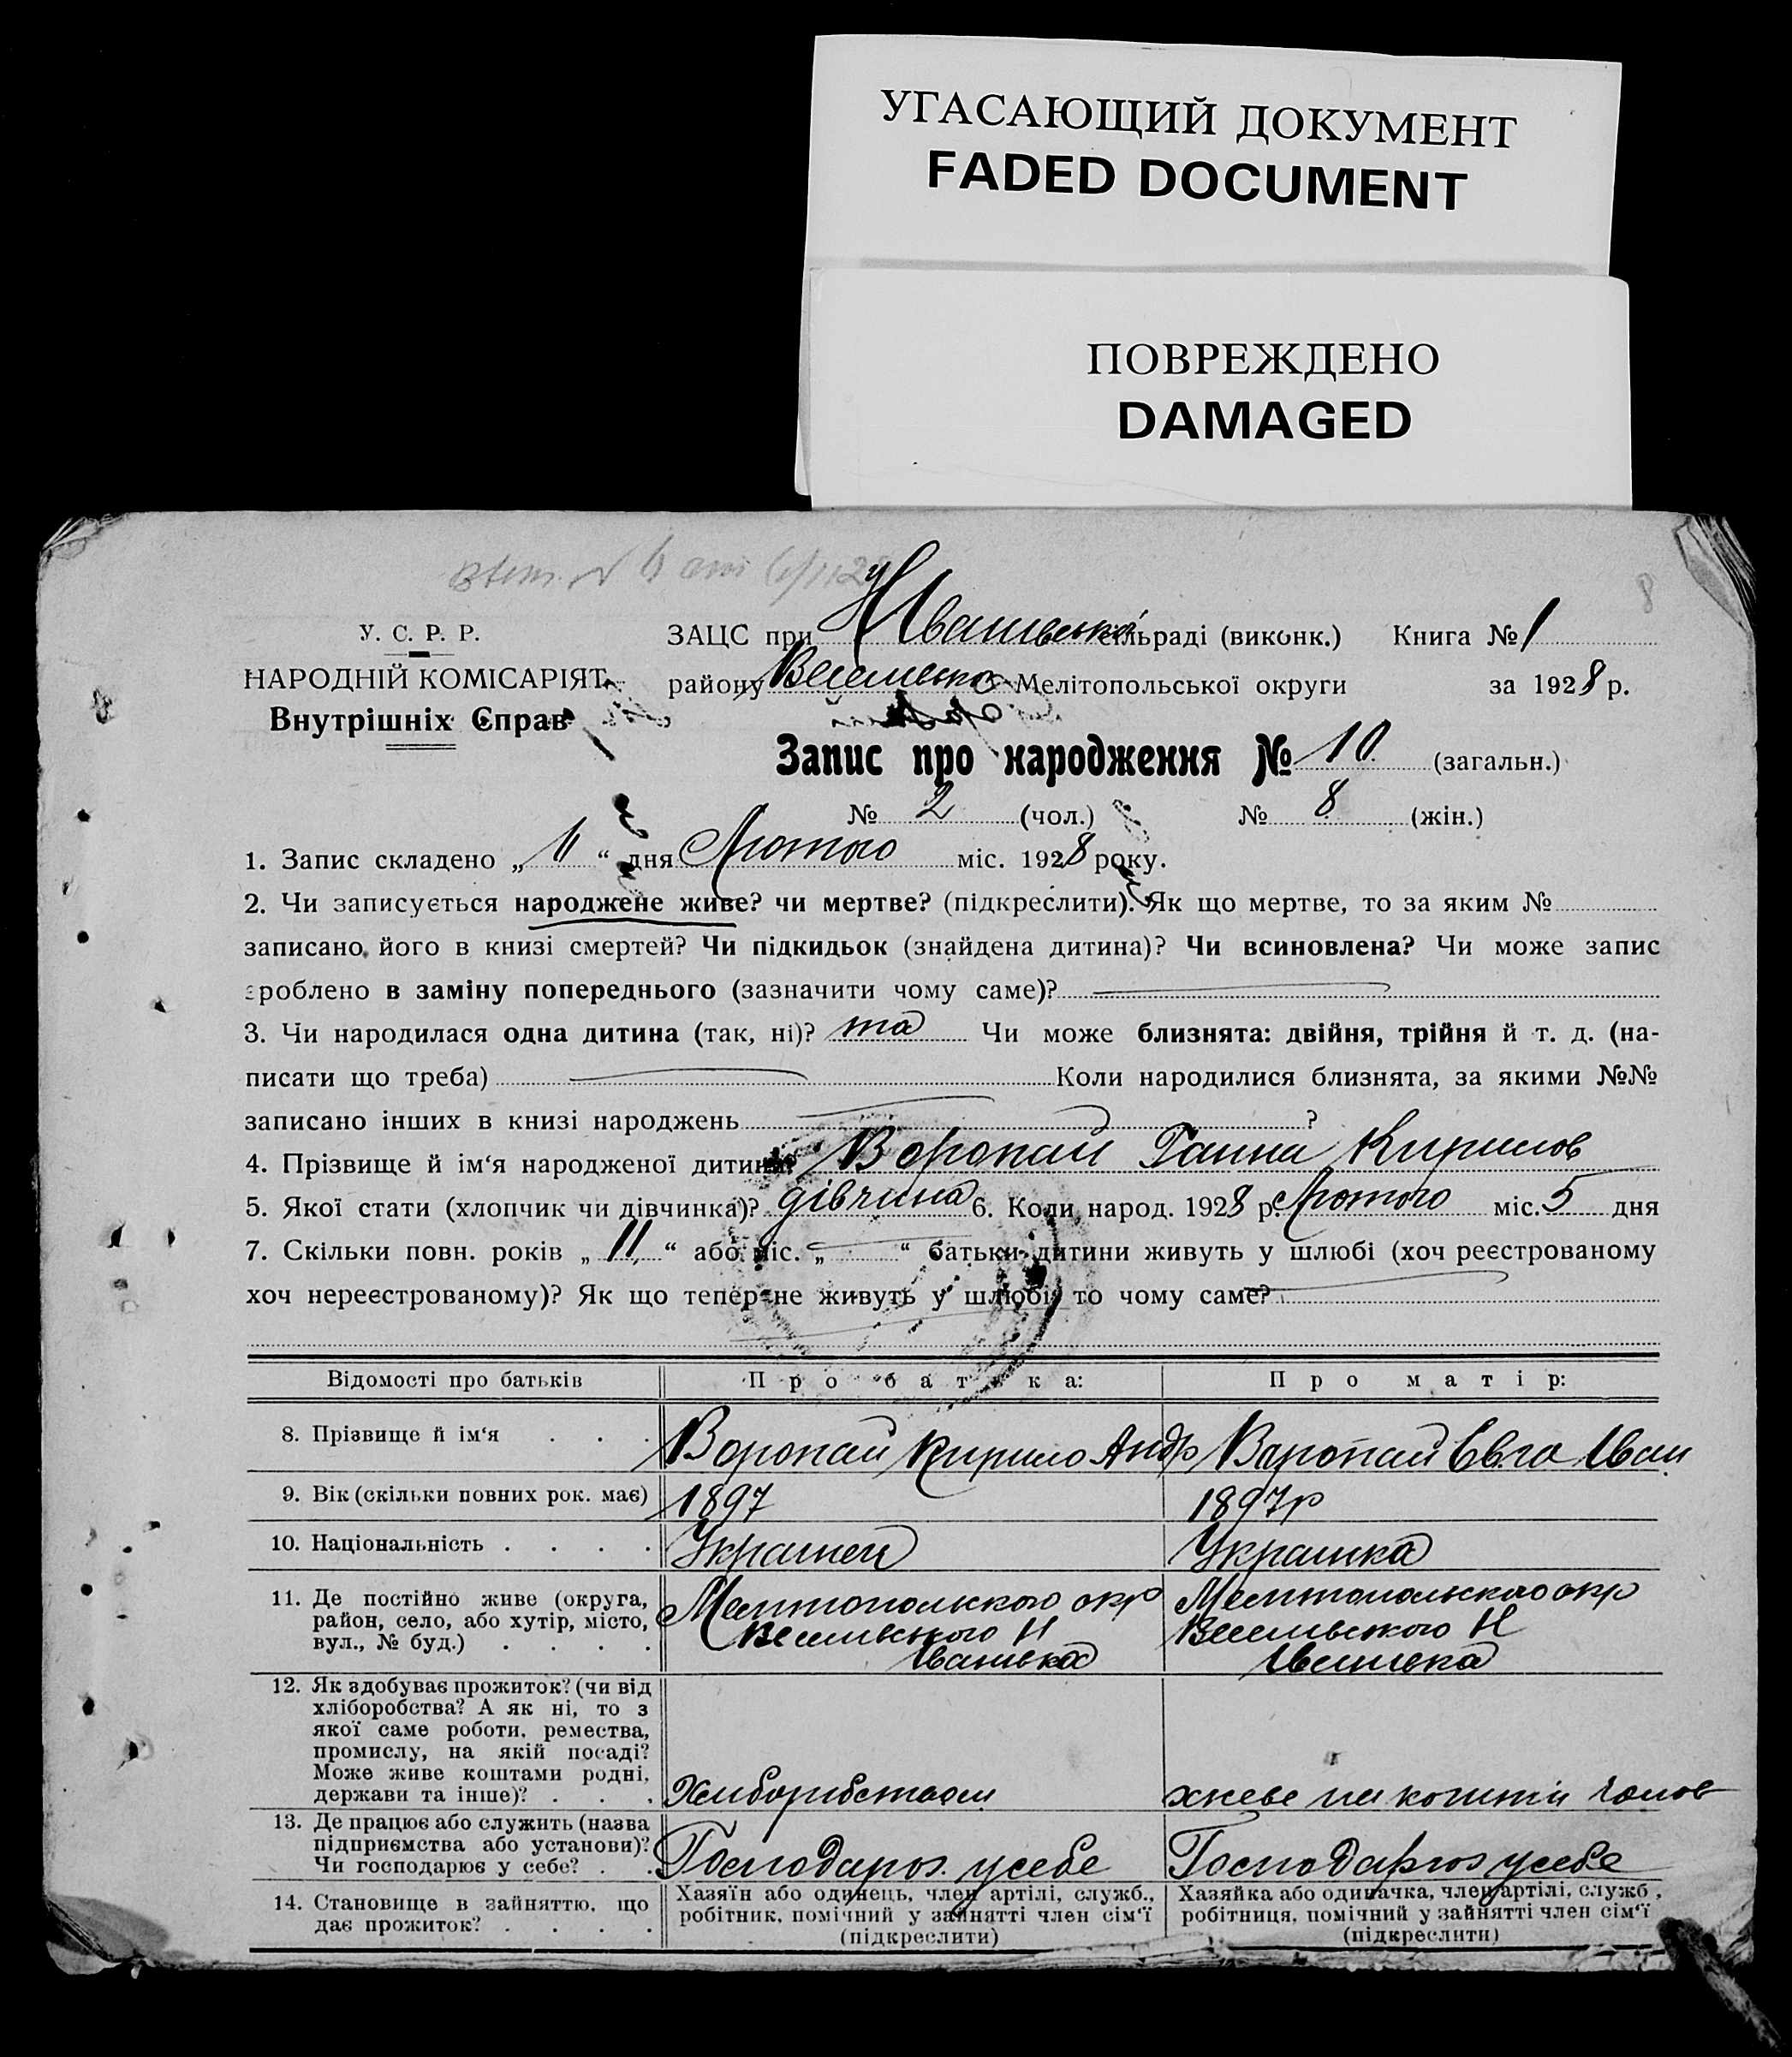 УГАСАЮЩИЙ ДОКУМЕНТ
FADED DOCUMENT
ПОВРЕЖДЕНО
DAMAGED
8
У. С. Р. Р.
НАРОДНІЙ КОМІСАРІЯТ
Внутрішніх Справ
ЗАЦС при сільраді (виконк.) Книга № 1
району Мелітопольської округи за 1928 р.
Запис про народження № 10 (загальн.)
№ 2 (чол.) № 8 (жін.)
1. Запис складено „ 11 “ дня Лютого міс. 1928 року.
2. Чи записується народжене живе? чи мертве? (підкреслити). Як що мертве, то за яким №
записано його в книзі смертей? Чи підкидьок (знайдена дитина)? Чи всиновлена? Чи може запис
зроблено в заміну попереднього (зазначити чому саме)?
3. Чи народилася одна дитина (так, ні)? та Чи може близнята: двійня, трійня й т. д. (на-
писати що треба) Коли народилися близнята, за якими №№
записано інших в книзі народжень ?
4. Прізвище й ім‘я народженої дитини? Воропай Ганна Кирилов
5. Якої стати (хлопчик чи дівчинка)? дівчина 6. Коли народ. 1928 р. Лютого міс. 5 дня
7. Скільки повн. років „ 11 “ або міс. „ “ батьки дитини живуть у шлюбі (хоч реєстрованому
хоч нереєстрованому)? Як що тепер не живуть у шлюбі, то чому саме?
Відомості про батьків Про батька: Про матір:
8. Прізвище й ім‘я . . . Воропай Кирило Андр Воропай Євга Іван
9. Вік (скільки повних рок. має) 1897 1897р
10. Національність . . . . Українец Українка
11. Де постійно живе (округа, Мелітопольского окр Мелітопольского окр
район, село, або хутір, місто, Веселівського Н Веселівського Н
вул., № буд.) . . . . Іванівка Іванівка
12. Як здобуває прожиток? (чи від
хліборобства? А як ні, то з
якої саме роботи, ремества,
промислу, на якій посаді?
Може живе коштами родні,
держави та інше)? . . . живе на кошти голов
13. Де працює або служить (назва
підприємства або установи)?
Чи господарює у себе? . . Господарює усебе Господарює усебе
14. Становище в зайняттю, що Хазяїн або одинець, член артілі, служб., Хазяйка або одиначка, член артілі, служб.,
дає прожиток? . . . . робітник, помічний у зайнятті член сім‘ї робітниця, помічний у зайнятті член сім‘ї
(підкреслити) (підкреслити)